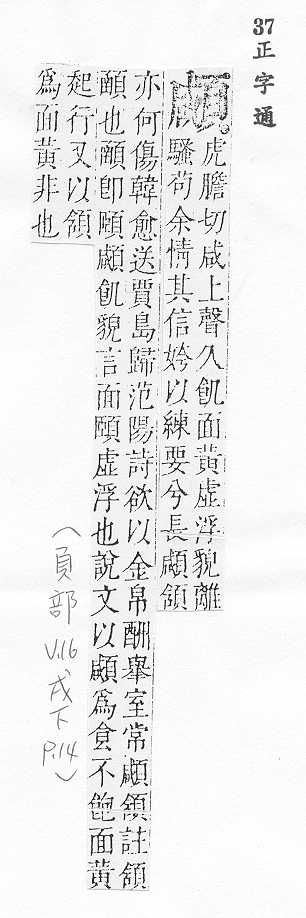 37正字通
顑
虎膽切咸上聲久飢面黃虛浮貌離
騷苟余情其信姱以練要兮長顑頷
亦何傷韓愈送賈島歸范陽詩欲以金帛酬舉室常顑頷註頷
顄也顄卽頤顑飢貌言面頤虛浮也說文以顑爲食不飽面黃
起行又以頷
爲面黃非也
(頁部 V.16 戌下 P.14)